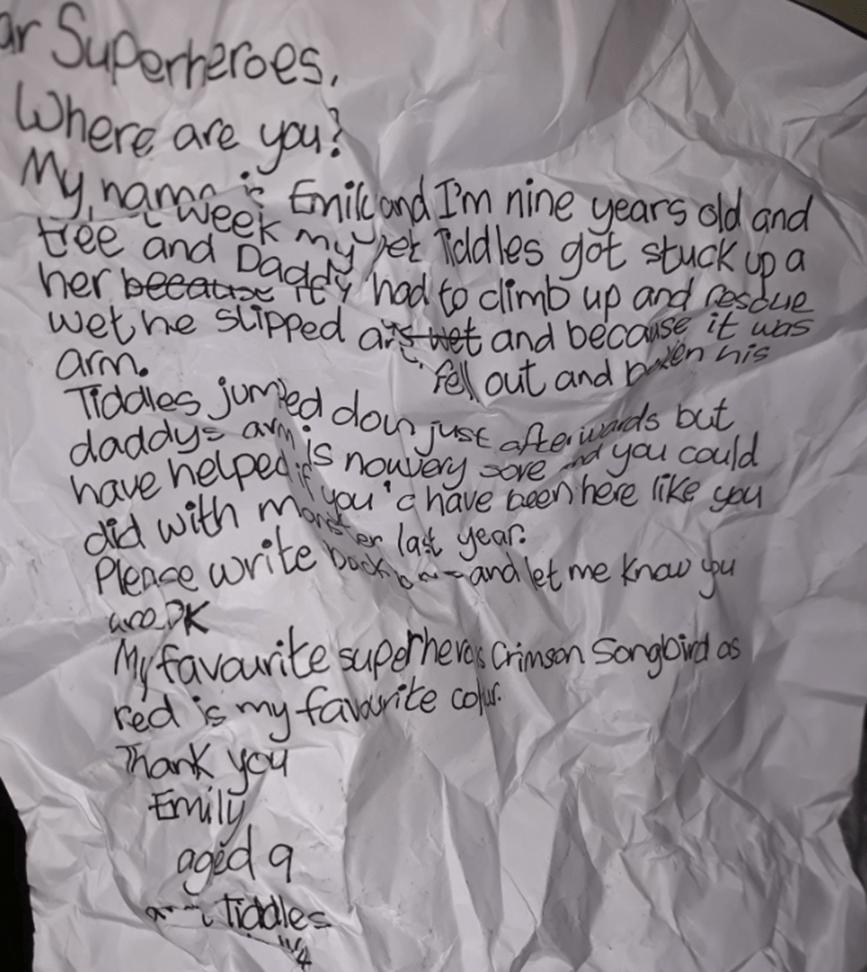 ar Superheroes,
Where are you?
My name is Emily and I'm nine years old and
week my pet Tiddles got stuck up a
tree and Daddy had to climb up and rescue
her because it wet and because it was
wet he slipped fell out and broken his
arm.
Tiddles jumped down just afterwards but
daddys arm is now very sore and you could
have helped if you'd have been here like you
did with monster last year.
Please write back and let me know you
are OK
My favourite superhero is Crimson Songbird as
red is my favourite colur.
Thank you
Emily
aged 9
and Tiddles
4